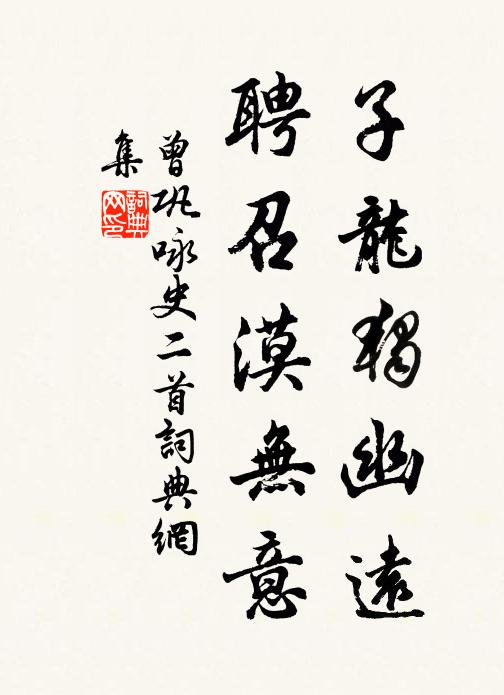 子龍獨幽遠
聘召漠無意
曾鞏咏史二首詞典網
集
詞典
网印